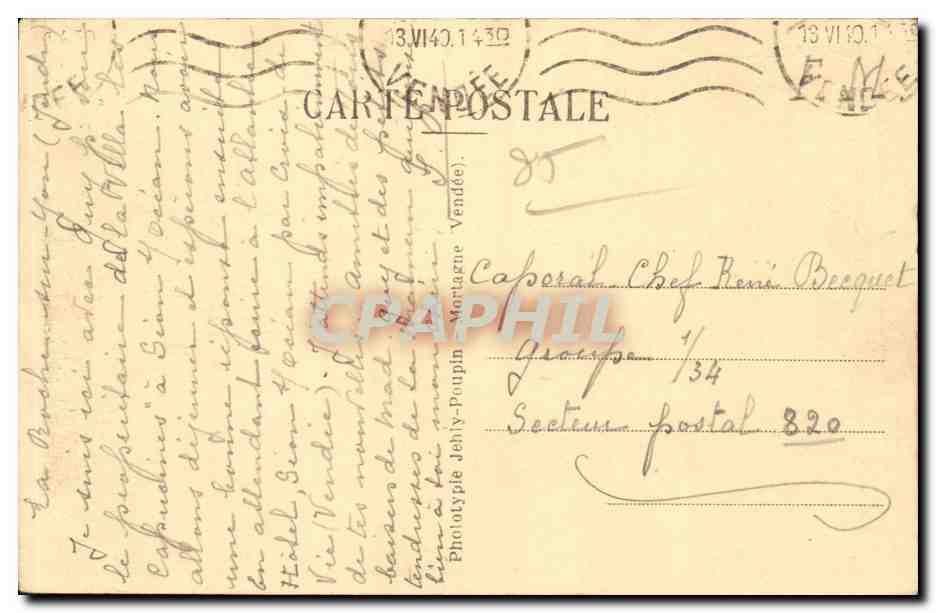 13.VI 40.14 30
VENDÉE
13 VI 40.1
F. M.
CARTE POSTALE
85
Caporal Chef René Becquet
groupe 1/34
Secteur postal 820
Phototypie Jehly-Poupin Mortagne Vendée).
La Roche-sur-Yon
Je suis ici avec
le propriétaire de la Villa "Les
Capucines" à Sion s/ Océan. Nous
allons déjeuner et espérons avoir
une bonne réponse ensuite
en attendant à l'Atlantic
Hôtel, Sion s/ Océan par Croix de
Vie (Vendée). J'attends impatiemment
de tes nouvelles.
baisers de Mad. et des
tendresses de ta
bien à toi
CPAPHIL